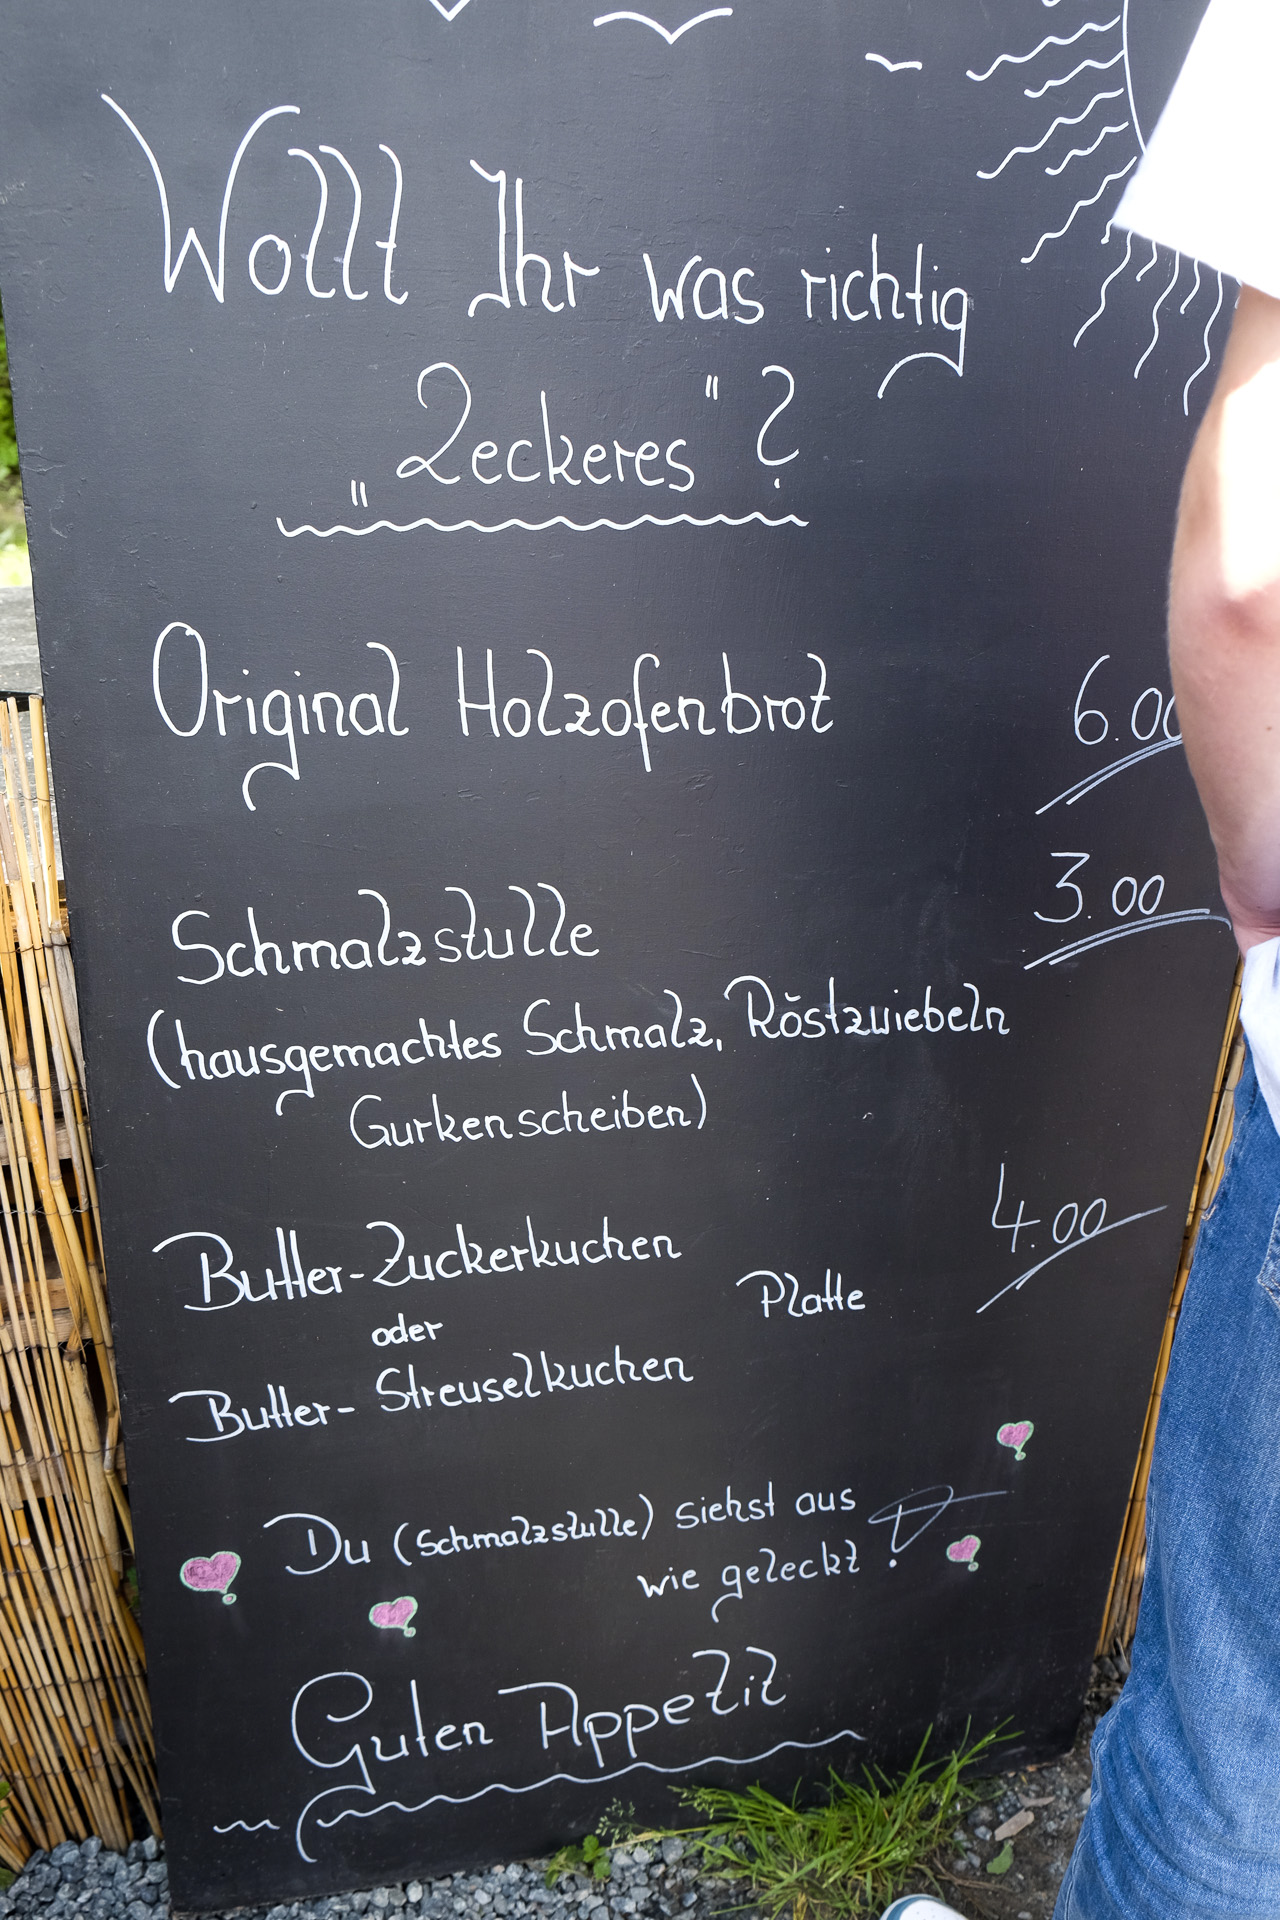 Wollt Ihr was richtig
„Leckeres"?
Original Holzofenbrot 6.00
Schmalzstulle 3.00
(hausgemachtes Schmalz, Röstzwiebeln
Gurkenscheiben)
Butter-Zuckerkuchen
oder Platte 4.00
Butter-Streuselkuchen
Du (Schmalzstulle) siehst aus
wie geleckt!
Guten Appetit